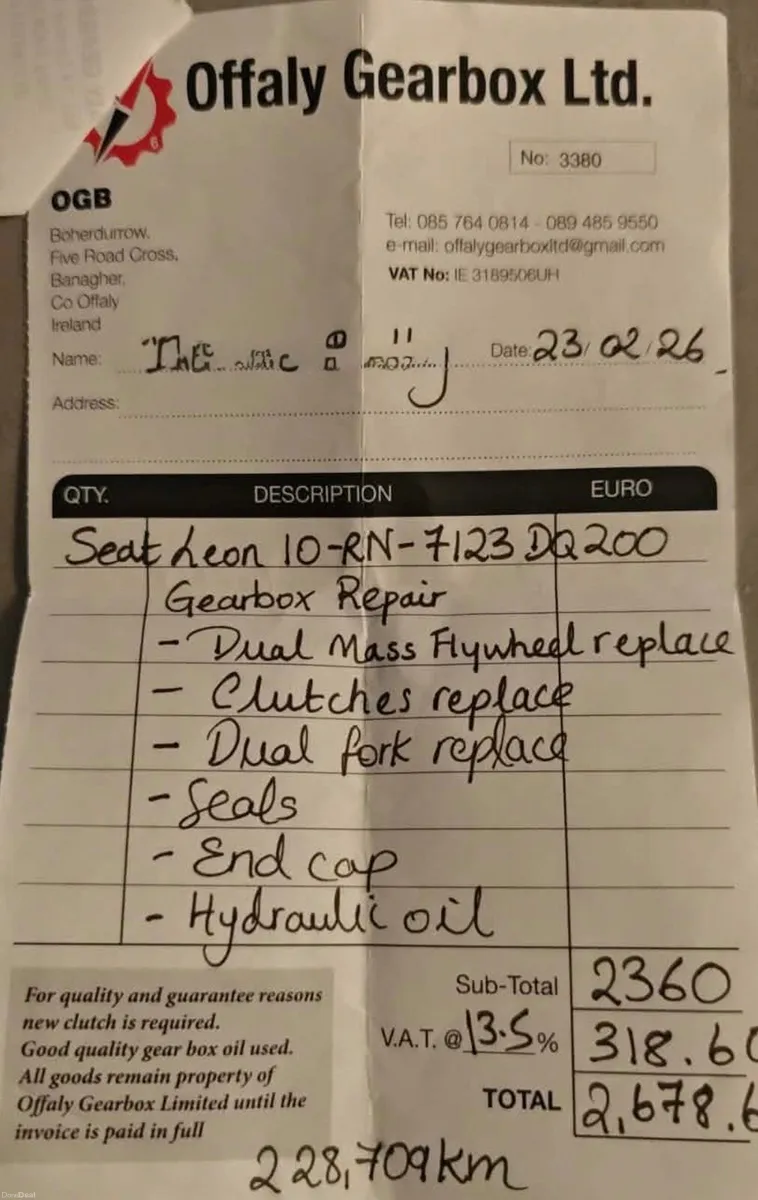 Offaly Gearbox Ltd.
No: 3380
OGB
Boherdurrow,
Five Road Cross,
Banagher,
Co Offaly
Ireland
Tel: 085 764 0814 - 089 485 9550
e-mail: offalygearboxltd@gmail.com
VAT No: IE 3189506UH
Name:
Date: 23/02/26
Address:
QTY. DESCRIPTION EURO
Seat Leon 10-RN-7123 DQ200
Gearbox Repair
- Dual Mass Flywheel replace
- Clutches replace
- Dual fork replace
- Seals
- End cap
- Hydraulic oil
Sub-Total 2360
V.A.T. @ 13.5 % 318.60
TOTAL 2,678.6
For quality and guarantee reasons
new clutch is required.
Good quality gear box oil used.
All goods remain property of
Offaly Gearbox Limited until the
invoice is paid in full
228,709km
DoneDeal